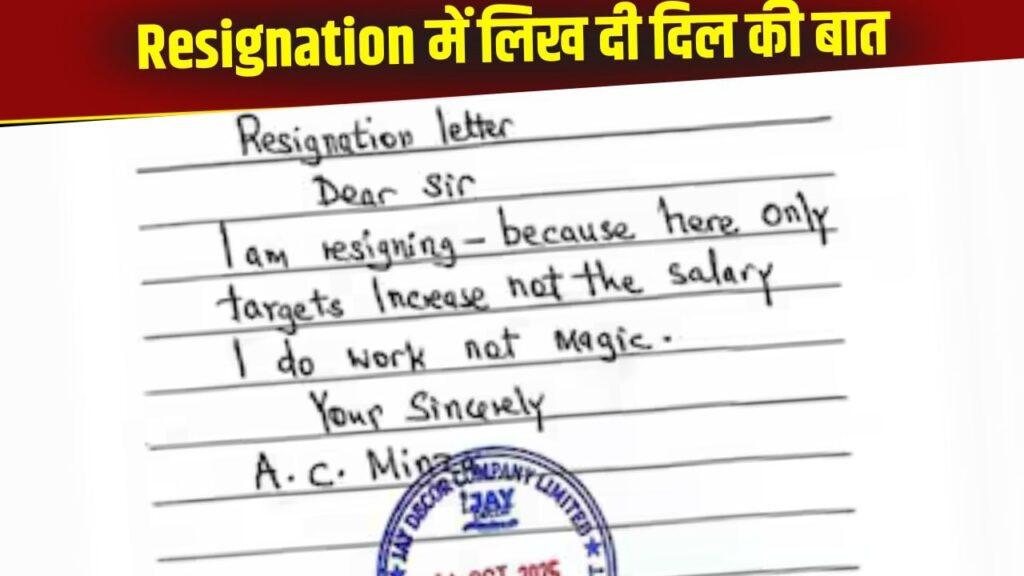 Resignation में लिख दी दिल की बात
Resignation letter
Dear Sir
I am resigning – because here only
targets Increase not the salary
I do work not Magic.
Your Sincerely
A. C.
JAY DECOR COMPANY LIMITED
JAY
OCT 2025